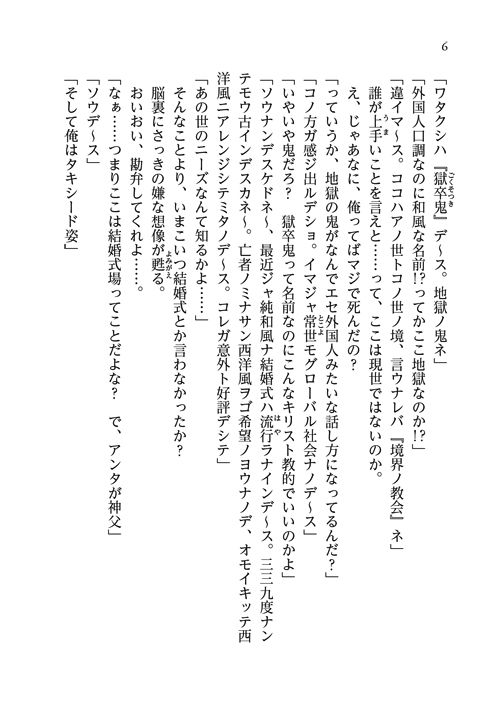 6
「ワタクシハ『獄卒鬼』デ〜ス。地獄ノ鬼ネ」
「外国人口調なのに和風な名前!?ってかここ地獄なのか!?」
「違イマ〜ス。ココハアノ世トコノ世ノ境、言ウナレバ『境界ノ教会』ネ」
誰が上手いことを言えと……って、ここは現世ではないのか。
え、じゃあなに、俺ってばマジで死んだの?
「っていうか、地獄の鬼がなんでエセ外国人みたいな話し方になってるんだ?」
「コノ方ガ感ジ出ルデショ。イマジャ常世モグローバル社会ナノデ〜ス」
「いやいや鬼だろ? 獄卒鬼って名前なのにこんなキリスト教的でいいのかよ」
「ソウナンデスケドネ〜、最近ジャ純和風ナ結婚式ハ流行ラナインデ〜ス。三三九度ナン
テモウ古インデスカネ〜。亡者ノミナサン西洋風ヲゴ希望ノヨウナノデ、オモイキッテ西
洋風ニアレンジシテミタノデ〜ス。コレガ意外ト好評デシテ」
「あの世のニーズなんて知るかよ……」
そんなことより、いまこいつ結婚式とか言わなかったか?
脳裏にさっきの嫌な想像が甦る。
おいおい、勘弁してくれよ……。
「なぁ……つまりここは結婚式場ってことだよな? で、アンタが神父」
「ソウデ〜ス」
「そして俺はタキシード姿」